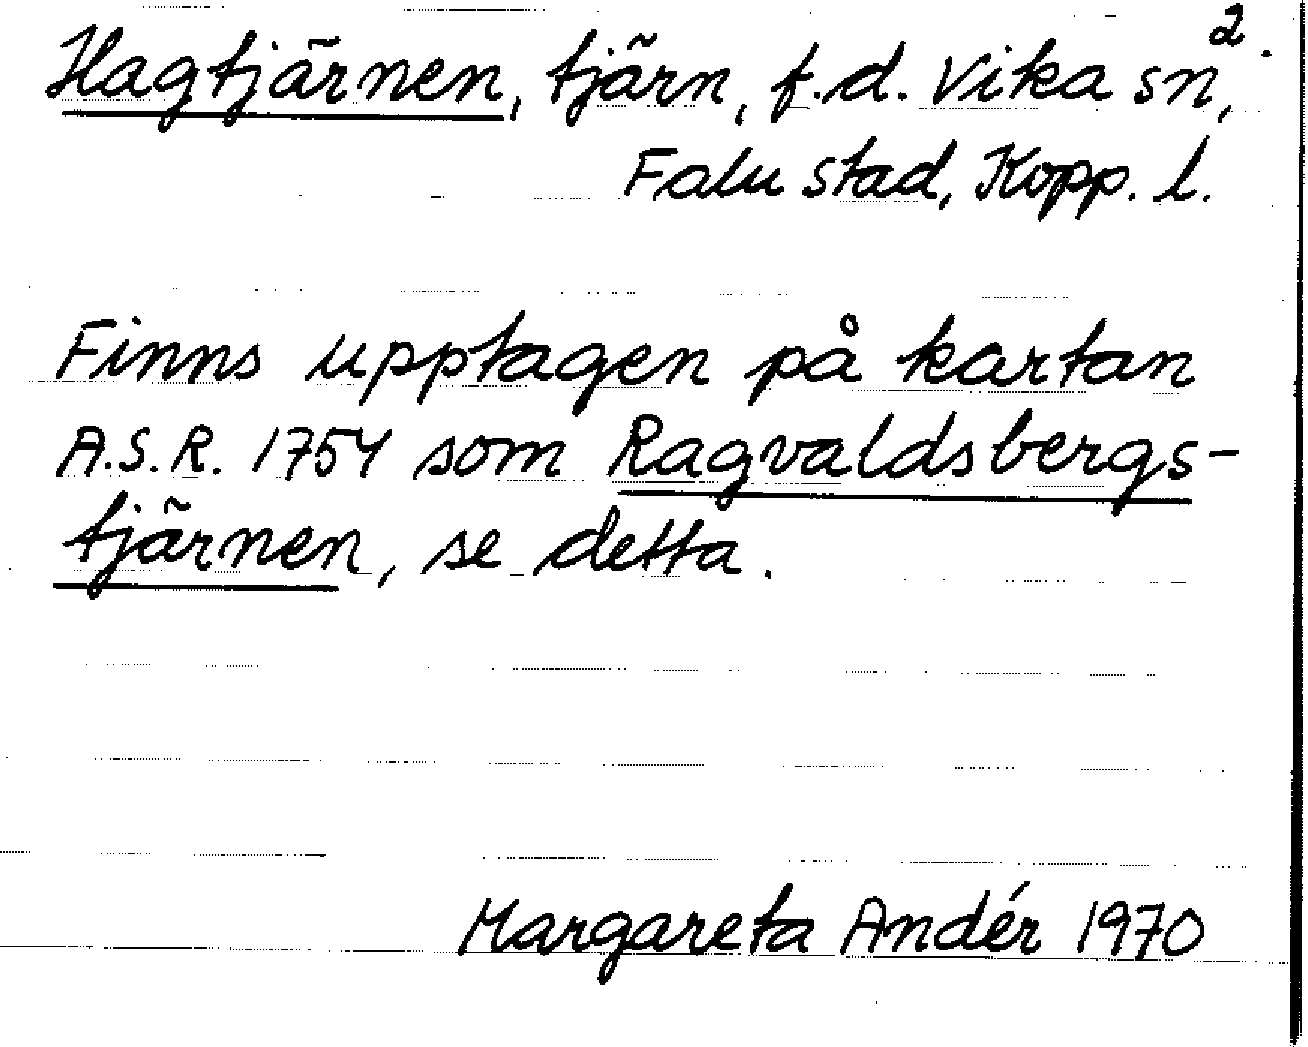 2.
Hagtjärnen, tjärn, f.d. Vika sn,
Falu stad, Kopp. l.
Finns upptagen på kartan
A.S.R. 1754 som Ragvaldsbergs-
tjärnen, se detta.
Margareta Andér 1970